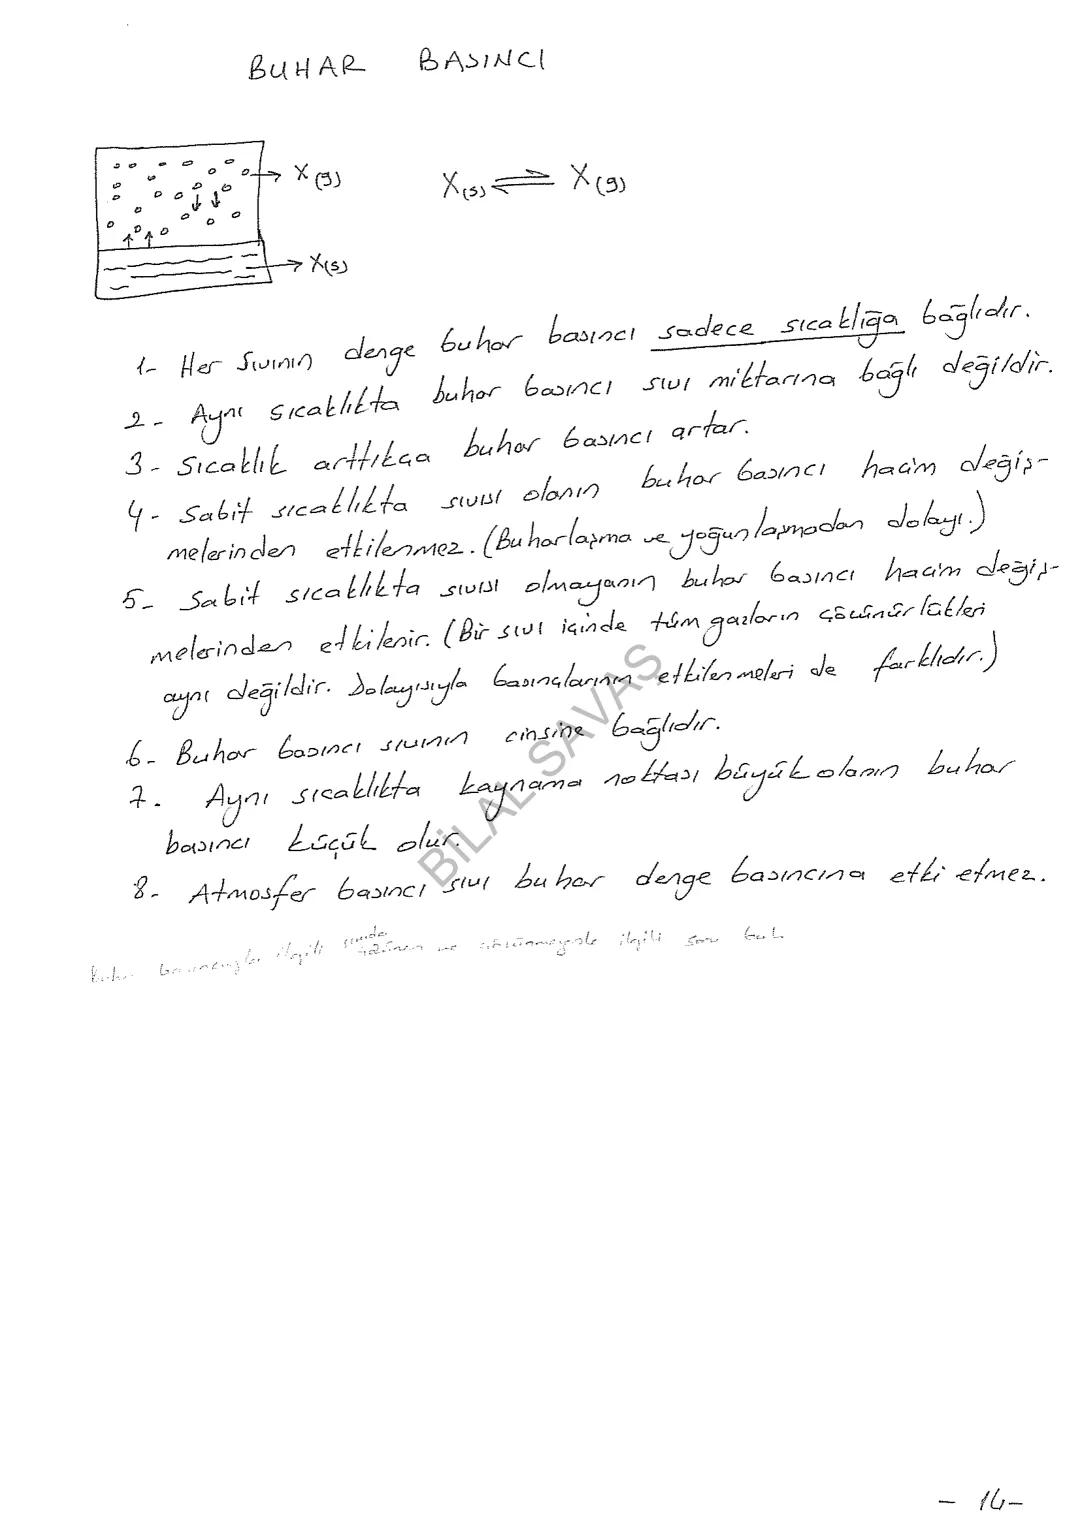 BUHAR BASINCI
X(g)
X(s) ⇌ X(g)
X(s)
1- Her sıvının denge buhar basıncı sadece sıcaklığa bağlıdır.
2- Aynı sıcaklıkta buhar basıncı sıvı miktarına bağlı değildir.
3- Sıcaklık arttıkça buhar basıncı artar.
4- Sabit sıcaklıkta sıvısı olanın buhar basıncı hacim değiş-
melerinden etkilenmez. (Buharlaşma ve yoğunlaşmadan dolayı.)
5- Sabit sıcaklıkta sıvısı olmayanın buhar basıncı hacim değiş-
melerinden etkilenir. (Bir sıvı içinde tüm gazların çözünürlükleri
aynı değildir. Dolayısıyla basınçlarının etkilenmeleri de farklıdır.)
6- Buhar basıncı sıvının cinsine bağlıdır.
7. Aynı sıcaklıkta kaynama noktası büyük olanın buhar
basıncı küçük olur.
8- Atmosfer basıncı sıvı buhar denge basıncına etki etmez.
ilgili sıvıda
çözünen ve çözünmeyenle ilgili soru
BİLAL SAVAŞ
- 14-